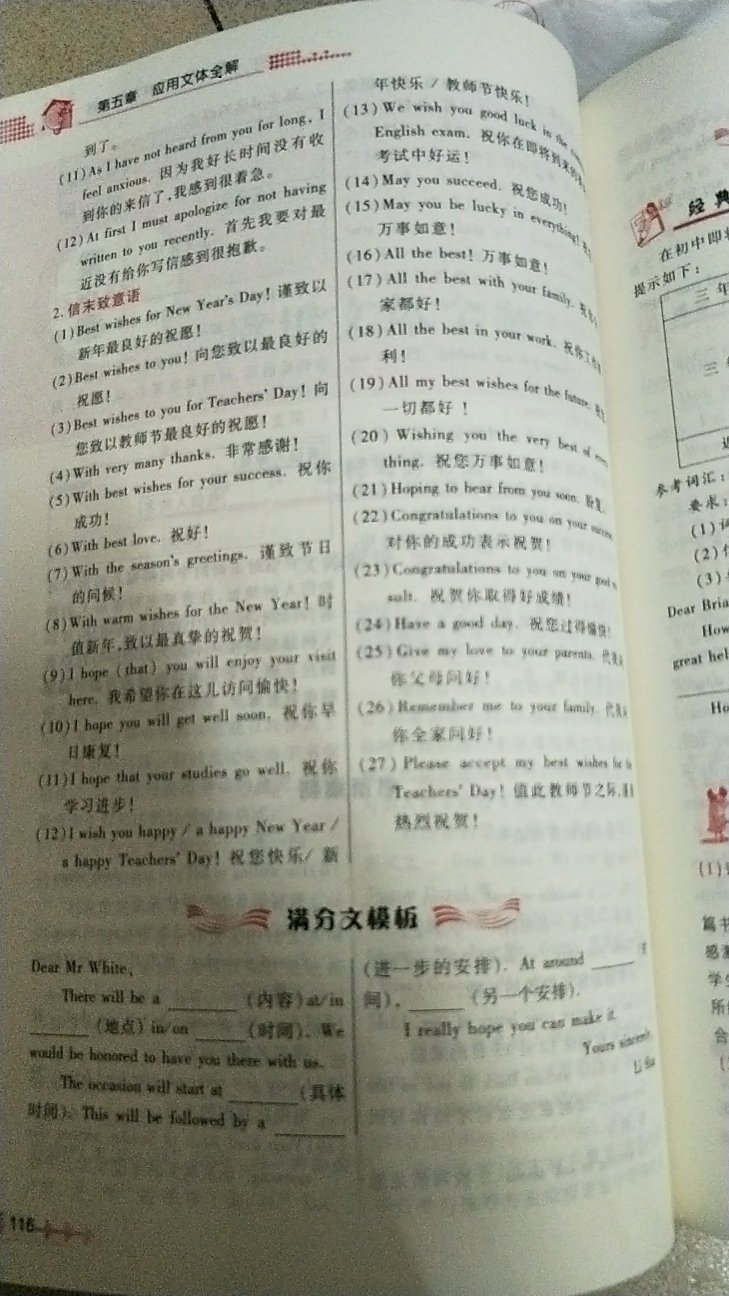 第五章 应用文体全解
到了。
(11)As I have not heard from you for long, I
feel anxious. 因为我好长时间没有收
到你的来信了,我感到很着急。
(12)At first I must apologize for not having
written to you recently. 首先我要对最
近没有给你写信感到很抱歉。
2.信末致意语
(1)Best wishes for New Year's Day! 谨致以
新年最良好的祝愿!
(2)Best wishes to you! 向您致以最良好的
祝愿!
(3)Best wishes to you for Teachers' Day! 向
您致以教师节最良好的祝愿!
(4)With very many thanks. 非常感谢!
(5)With best wishes for your success. 祝你
成功!
(6)With best love. 祝好!
(7)With the season's greetings. 谨致节日
的问候!
(8)With warm wishes for the New Year! 时
值新年,致以最真挚的祝贺!
(9)I hope (that) you will enjoy your visit
here. 我希望你在这儿访问愉快!
(10)I hope you will get well soon. 祝你早
日康复!
(11)I hope that your studies go well. 祝你
学习进步!
(12)I wish you happy / a happy New Year /
a happy Teachers' Day! 祝您快乐/ 新
年快乐 / 教师节快乐!
(13)We wish you good luck in the
English exam. 祝你在即将到来的
考试中好运!
(14)May you succeed. 祝您成功!
(15)May you be lucky in everything!
万事如意!
(16)All the best! 万事如意!
(17)All the best with your family.
家都好!
(18)All the best in your work. 祝你工作
利!
(19)All my best wishes for the future.
一切都好 !
(20) Wishing you the very best of
thing. 祝您万事如意!
(21)Hoping to hear from you soon.
(22)Congratulations to you on your
对你的成功表示祝贺!
(23)Congratulations to you on your good
sult. 祝贺你取得好成绩!
(24)Have a good day. 祝您过得愉快!
(25)Give my love to your parents.
你父母问好!
(26)Remember me to your family.
你全家问好!
(27)Please accept my best wishes for
Teachers' Day! 值此教师节之际,
热烈祝贺!
满分文模板
Dear Mr White,
There will be a ______ (内容)at/in
______ (地点) in/on ______ (时间). We
would be honored to have you there with us.
The occasion will start at ______ (具体
时间). This will be followed by a ______
(进一步的安排). At around ______
间), ______ (另一个安排).
I really hope you can make it.
Yours sincerely,
Li
116
经典
在初中即将
提示如下:
三年
三年
参考词汇:
要求:
(1)
(2)
(3)
Dear Bria
How
great hel
Ho
(1)
篇书
感
学生
所
合